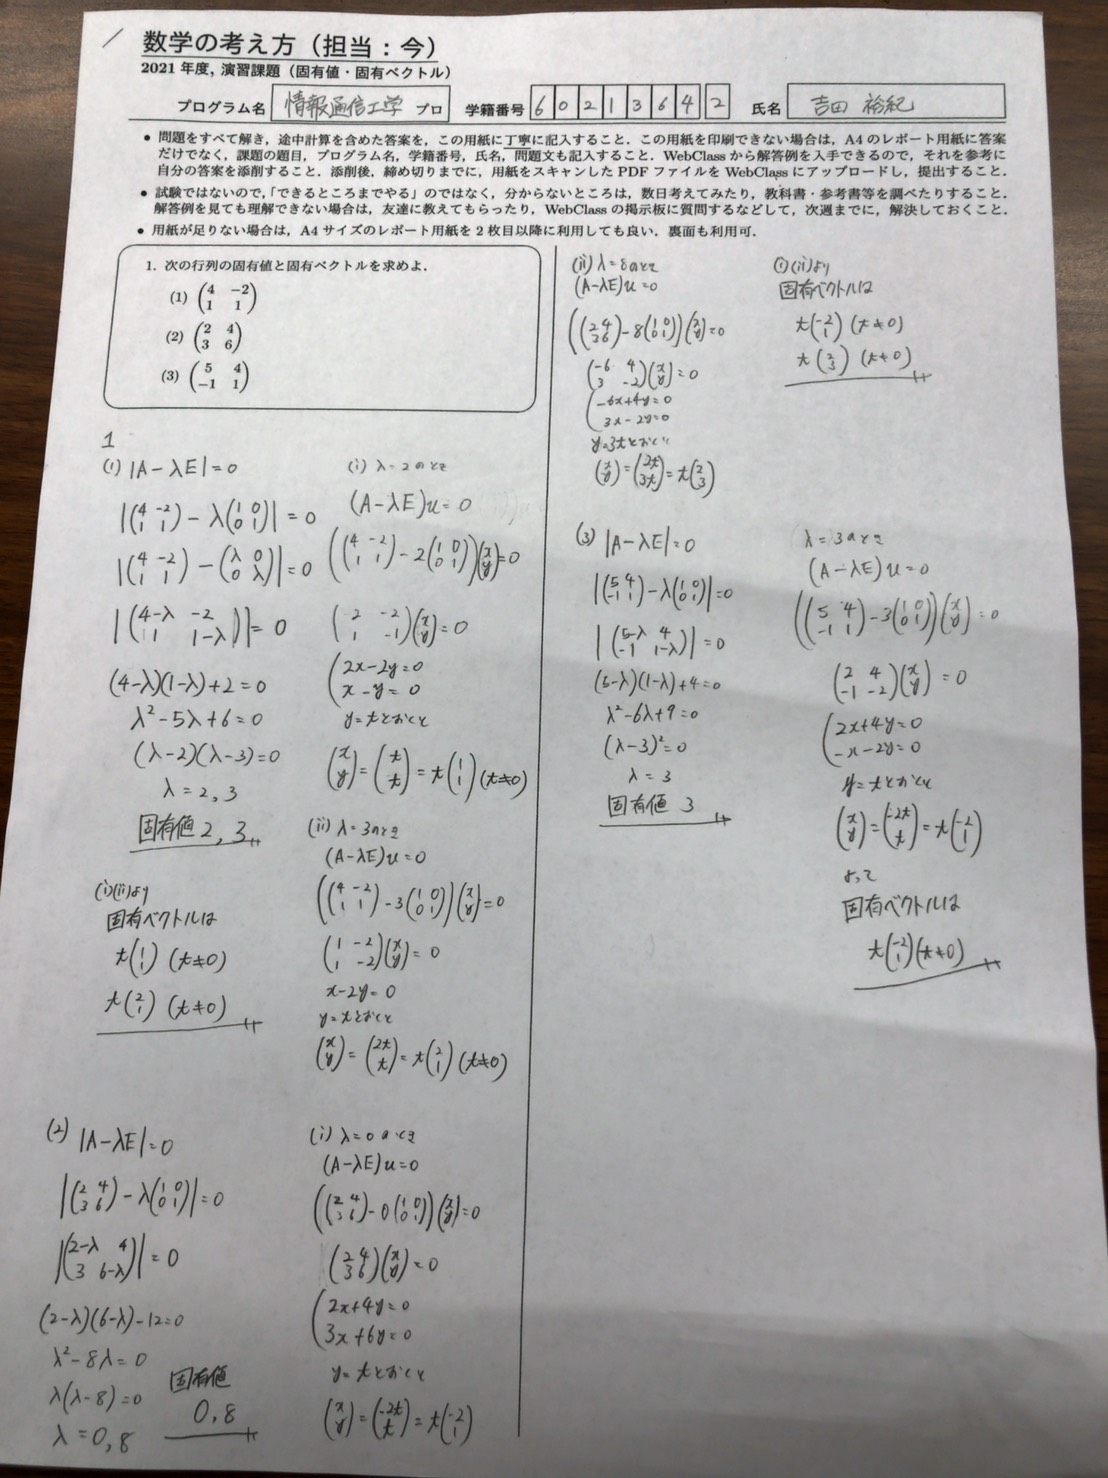 数学の考え方（担当：今）
2021 年度, 演習課題（固有値・固有ベクトル）
プログラム名 情報通信工学 プロ 学籍番号 6 0 2 1 3 6 4 2 氏名 吉田 裕紀
• 問題をすべて解き，途中計算を含めた答案を，この用紙に丁寧に記入すること．この用紙を印刷できない場合は，A4 のレポート用紙に答案
だけでなく，課題の題目，プログラム名，学籍番号，氏名，問題文も記入すること．WebClass から解答例を入手できるので，それを参考に
自分の答案を添削すること．添削後，締め切りまでに，用紙をスキャンした PDF ファイルを WebClass にアップロードし，提出すること．
• 試験ではないので，「できるところまでやる」のではなく，分からないところは，数日考えてみたり，教科書・参考書等を調べたりすること．
解答例を見ても理解できない場合は，友達に教えてもらったり，WebClass の掲示板に質問するなどして，次週までに，解決しておくこと．
• 用紙が足りない場合は，A4 サイズのレポート用紙を 2 枚目以降に利用しても良い．裏面も利用可．
1. 次の行列の固有値と固有ベクトルを求めよ．
(1) (4 -2
1 1)
(2) (2 4
3 6)
(3) (5 4
-1 1)
1
(1) |A-λE|=0
|(4 -2
1 1) - λ(1 0
0 1)| = 0
|(4 -2
1 1) - (λ 0
0 λ)| = 0
|(4-λ -2
1 1-λ)| = 0
(4-λ)(1-λ)+2=0
λ²-5λ+6=0
(λ-2)(λ-3)=0
λ=2,3
固有値 2,3
(i) λ=2のとき
(A-λE)u=0
((4 -2
1 1) - 2(1 0
0 1))(x
y)=0
(2 -2
1 -1)(x
y)=0
(2x-2y=0
x-y=0
y=tとおくと
(x
y)=(t
t)=t(1
1)(t≠0)
(ii) λ=3のとき
(A-λE)u=0
((4 -2
1 1) - 3(1 0
0 1))(x
y)=0
(1 -2
1 -2)(x
y)=0
x-2y=0
y=tとおくと
(x
y)=(2t
t)=t(2
1)(t≠0)
(i)(ii)より
固有ベクトルは
t(1
1)(t≠0)
t(2
1)(t≠0)
(2) |A-λE|=0
|(2 4
3 6) - λ(1 0
0 1)|=0
|(2-λ 4
3 6-λ)|=0
(2-λ)(6-λ)-12=0
λ²-8λ=0
λ(λ-8)=0
λ=0,8
固有値
0,8
(i) λ=0のとき
(A-λE)u=0
((2 4
3 6) - 0(1 0
0 1))(x
y)=0
(2 4
3 6)(x
y)=0
(2x+4y=0
3x+6y=0
y=tとおくと
(x
y)=(-2t
t)=t(-2
1)
(ii) λ=8のとき
(A-λE)u=0
((2 4
3 6) - 8(1 0
0 1))(x
y)=0
(-6 4
3 -2)(x
y)=0
(-6x+4y=0
3x-2y=0
y=3tとおくと
(x
y)=(2t
3t)=t(2
3)
(i)(ii)より
固有ベクトルは
t(-2
1)(t≠0)
t(2
3)(t≠0)
(3) |A-λE|=0
|(5 4
-1 1) - λ(1 0
0 1)|=0
|(5-λ 4
-1 1-λ)|=0
(5-λ)(1-λ)+4=0
λ²-6λ+9=0
(λ-3)²=0
λ=3
固有値 3
λ=3のとき
(A-λE)u=0
((5 4
-1 1) - 3(1 0
0 1))(x
y)=0
(2 4
-1 -2)(x
y)=0
(2x+4y=0
-x-2y=0
y=tとおくと
(x
y)=(-2t
t)=t(-2
1)
よって
固有ベクトルは
t(-2
1)(t≠0)